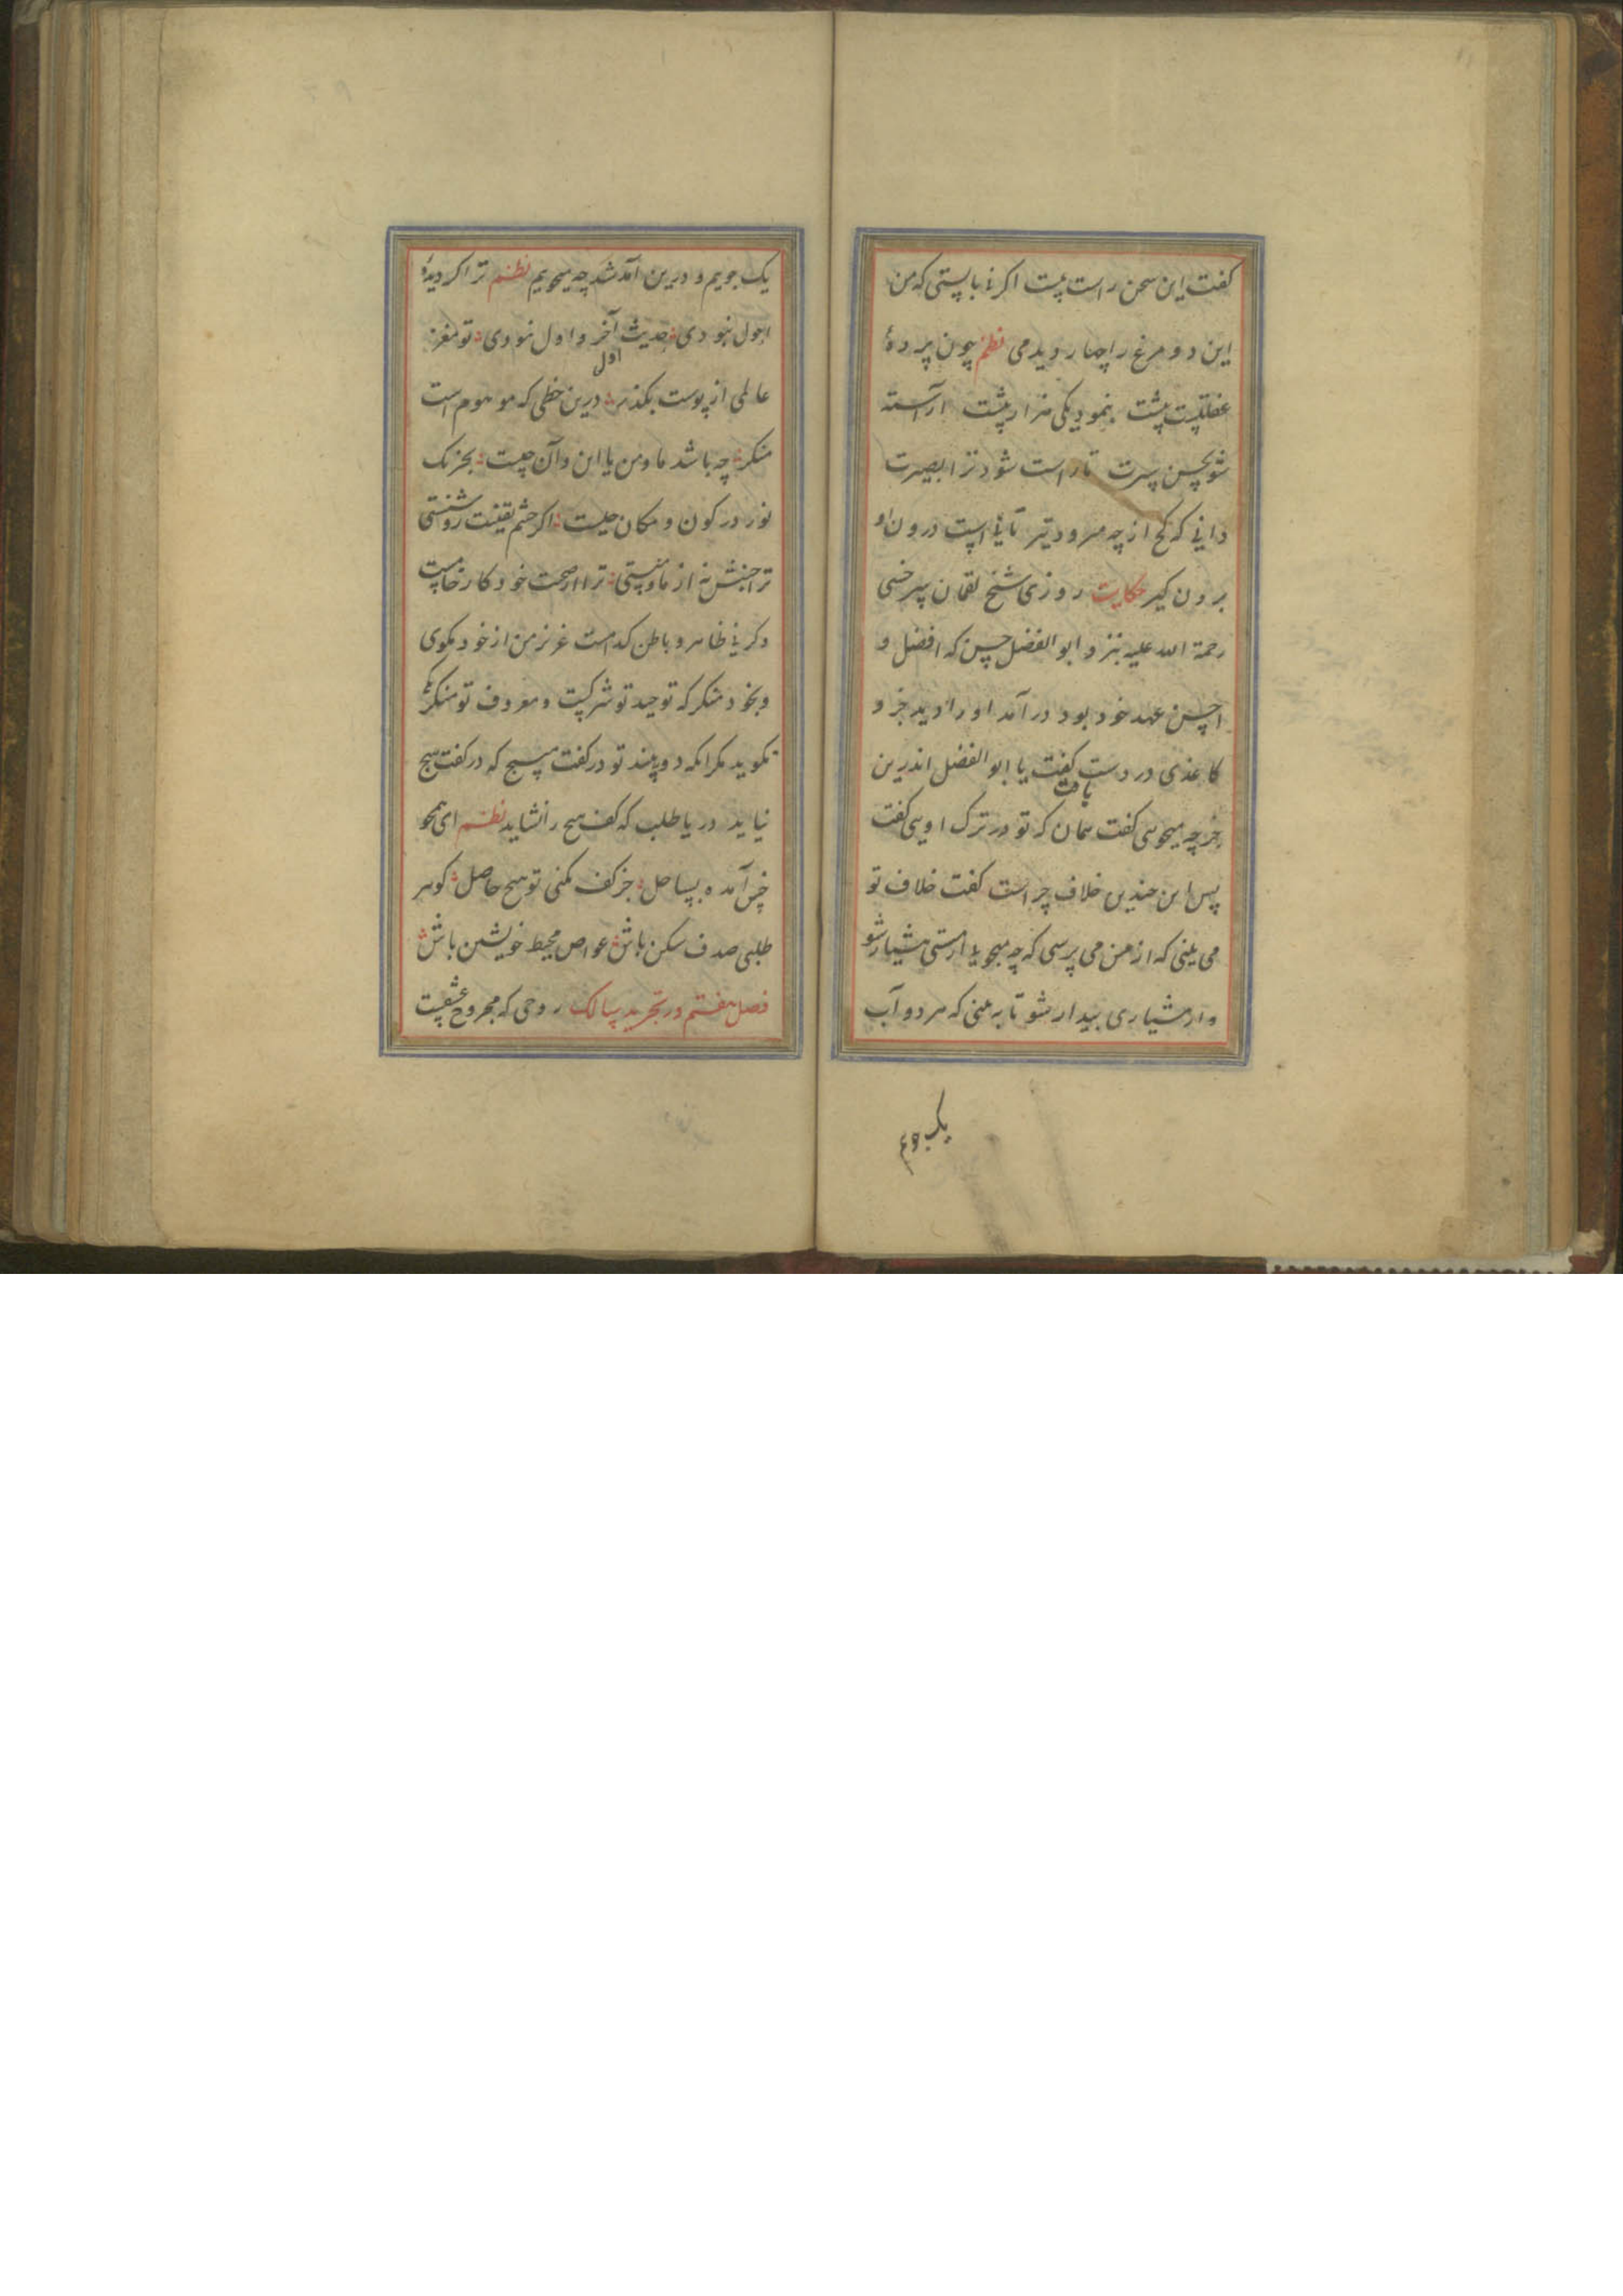 کفت این سخن راست نیست اکر نه بایستی که من
این دو مرغ را چهار دیدمی نظم چون پردهٔ
غفلتست پیشت بنمود یکی هزار پیشت آراسته
شو بحسن سیرت تا راست شود ترا بصیرت
دانی که کج از چه میرود تیر تا نی است درون او
برون کیر حکایت روزی شیخ لقمان سرخسی
رحمة الله علیه بنزد ابو الفضل حسن که افضل و
احسن عهد خود بود در آمد او را دید جزو
کاغذی در دست کفت یا ابو الفضل اندرین
جزو چه میجویی کفت همان که تو در ترک او می
یافت
کفت
پس این چندین خلاف چراست کفت خلاف تو
می بینی که از من می پرسی که چه میجویی از مستی هشیار شو
و از هشیاری بیدار شو تا به بینی که هر دو آب
یک جویم
یک جویم و درین آمد شد چه میجویم نظم ترا کر دیدهٔ
احول نبودی حدیث آخر و اول نبودی تو مغز
اول
عالمی از پوست بکذر درین خطی که موهوم است
منکر چه باشد ما و من یا این و آن چیست بجز یک
نور در کون و مکان چیست اکر چشم یقینت روشنستی
ترا جنبش نه از ما و منستی ترا از صحت خود کار خامست
و کر نی ظاهر و باطن کدامست عزیز من از خود مکوی
و بخود منکر که توحید تو شرکیست و معروف تو منکر
نکوید مکر انکه دو بیند تو در کفت مپیچ که در کفت هیچ
نیاید دریا طلب که کف هیچ را نشاید نظم ای همچو
خس آمده بساحل جز کف نکنی تو هیچ حاصل کوهر
طلبی صدف شکن باش غواص محیط خویشتن باش
فصل هفتم در تجرید سالک روحی که مجروح عشقست